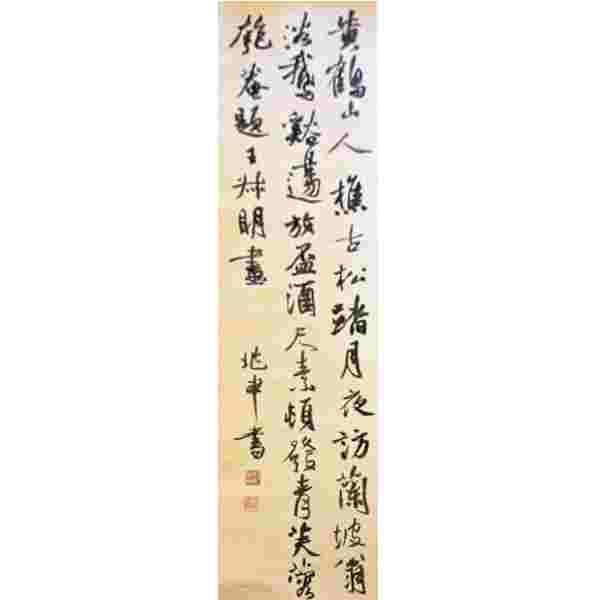 黃鶴山人樵古松踏月夜訪蘭坡翁
浴鵝谿邊放盃酒尺素頓發青芙蓉
匏菴題王叔明畫
兆申書